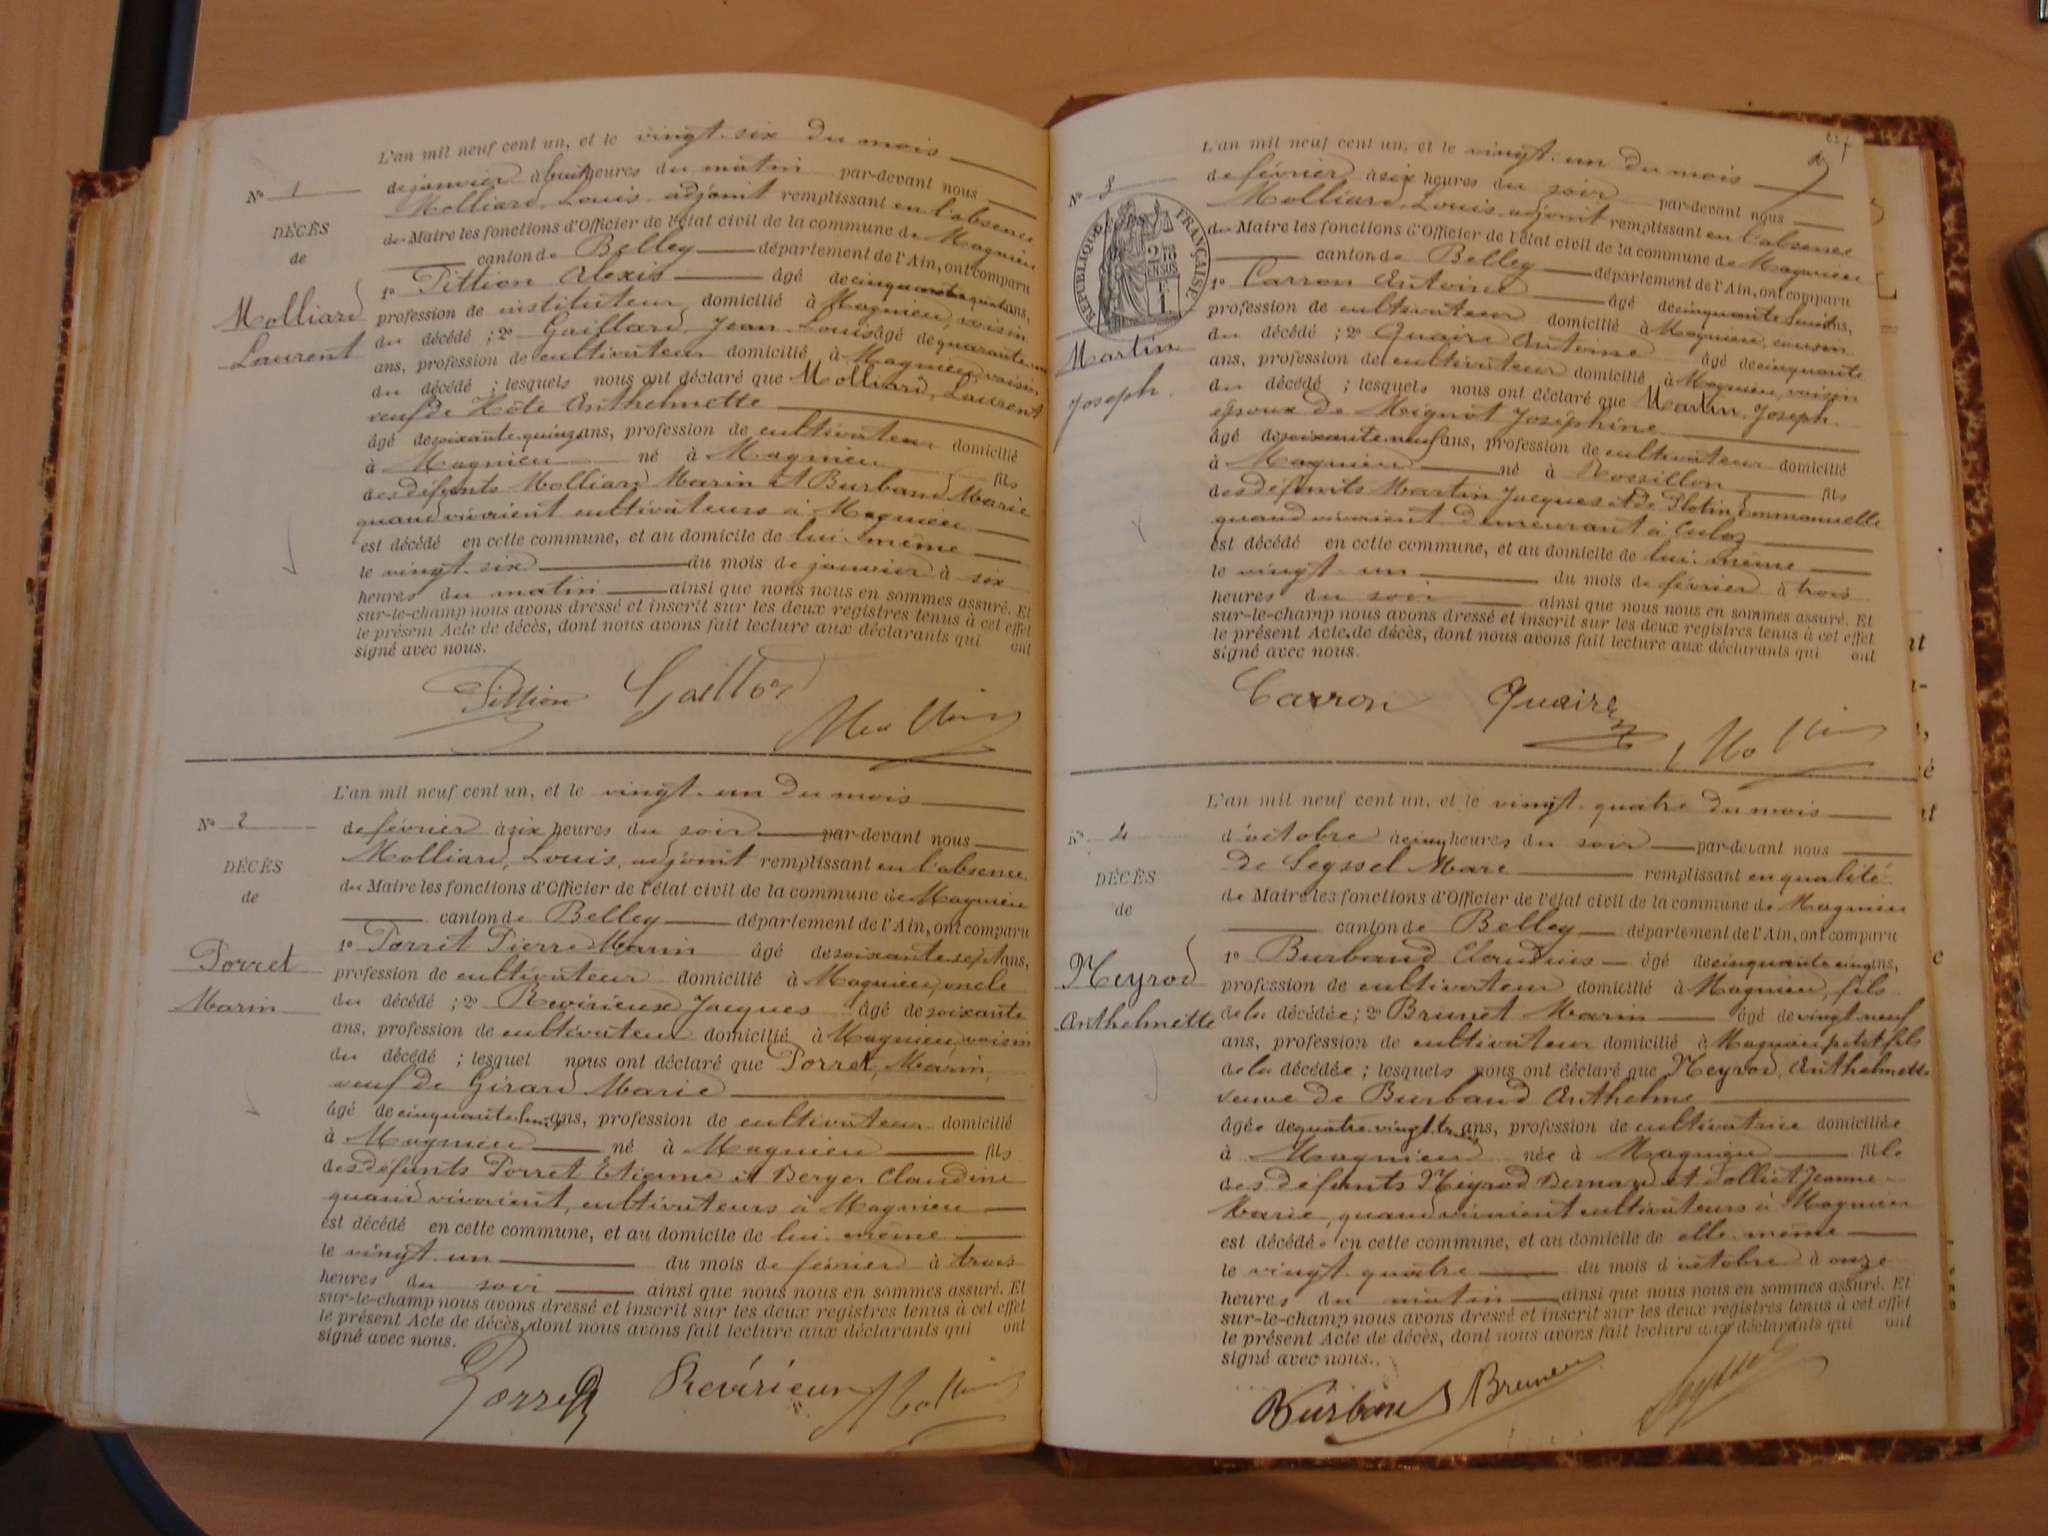 L'an mil neuf cent un, et le vingt-six du mois
N° 1
de janvier à huit heures du matin par-devant nous
DÉCÈS
Molliard, Louis, adjoint remplissant en l'absence
de
du Maire les fonctions d'Officier de l'état civil de la commune de Magnieu
canton de Belley département de l'Ain, ont comparu
1° Pittion Alexis âgé de cinquante quatre ans,
Molliard
Laurent
profession de instituteur domicilié à Magnieu, voisin
du décédé ; 2° Gaillard, Jean Louis âgé de quarante
ans, profession de cultivateur domicilié à Magnieu, voisin
du décédé ; lesquels nous ont déclaré que Molliard, Laurent
veuf de Hôte Anthelmette
âgé de soixante-quinze ans, profession de cultivateur domicilié
à Magnieu né à Magnieu fils
des défunts Molliard Marin et Burbaud Marie
quand vivaient cultivateurs à Magnieu
est décédé en cette commune, et au domicile de lui-même
le vingt-six du mois de janvier à six
heures du matin ainsi que nous nous en sommes assuré. Et
sur-le-champ nous avons dressé et inscrit sur les deux registres tenus à cet effet
le présent Acte de décès, dont nous avons fait lecture aux déclarants qui ont
signé avec nous.
Pittion Gaillard
L'an mil neuf cent un, et le vingt-un du mois
N° 2
de février à six heures du soir par-devant nous
DÉCÈS
Molliard, Louis, adjoint remplissant en l'absence
de
du Maire les fonctions d'Officier de l'état civil de la commune de Magnieu
canton de Belley département de l'Ain, ont comparu
Porret
Marin
1° Porret Pierre Marin âgé de soixante-sept ans,
profession de cultivateur domicilié à Magnieu, oncle
du décédé ; 2° Revirieux Jacques âgé de soixante
ans, profession de cultivateur domicilié à Magnieu, voisin
du décédé ; lesquel nous ont déclaré que Porret, Marin,
veuf de Girard Marie
âgé de cinquante huit ans, profession de cultivateur domicilié
à Magnieu né à Magnieu fils
des défunts Porret Etienne et Berger Claudine
quand vivaient, cultivateurs à Magnieu
est décédé en cette commune, et au domicile de lui-même
le vingt-un du mois de février à trois
heures du soir ainsi que nous nous en sommes assuré. Et
sur-le-champ nous avons dressé et inscrit sur les deux registres tenus à cet effet
le présent Acte de décès, dont nous avons fait lecture aux déclarants qui ont
signé avec nous.
Porret Révérieux
L'an mil neuf cent un, et le vingt-un du mois
N° 3
de février à six heures du soir par-devant nous
RÉPUBLIQUE FRANÇAISE
Molliard, Louis, adjoint remplissant en l'absence
du Maire les fonctions d'Officier de l'état civil de la commune de Magnieu
canton de Belley département de l'Ain, ont comparu
1° Carron Antoine âgé de cinquante huit ans,
profession de cultivateur domicilié à Magnieu, cousin
Martin
Joseph
du décédé ; 2° Quaire Antoine âgé de cinquante
ans, profession de cultivateur domicilié à Magnieu, voisin
du décédé ; lesquels nous ont déclaré que Martin, Joseph
époux de Mignot Joséphine
âgé de soixante-neuf ans, profession de cultivateur domicilié
à Magnieu né à Rossillon fils
des défunts Martin Jacques et de Plotin Emmanuelle
quand vivaient demeurant à Culoz
est décédé en cette commune, et au domicile de lui-même
le vingt-un du mois de février à trois
heures du soir ainsi que nous nous en sommes assuré. Et
sur-le-champ nous avons dressé et inscrit sur les deux registres tenus à cet effet
le présent Acte de décès, dont nous avons fait lecture aux déclarants qui ont
signé avec nous.
Carron Quaire
L'an mil neuf cent un, et le vingt-quatre du mois
N° 4
d'octobre à cinq heures du soir par-devant nous
DÉCÈS
de Seyssel Marc remplissant en qualité
de
de Maire les fonctions d'Officier de l'état civil de la commune de Magnieu
canton de Belley département de l'Ain, ont comparu
Neyrod
Anthelmette
1° Burbaud Claudius âgé de cinquante cinq ans,
profession de cultivateur domicilié à Magnieu, fils
de la décédée ; 2° Brunet Marin âgé de vingt-neuf
ans, profession de cultivateur domicilié à Magnieu petit fils
de la décédée ; lesquels nous ont déclaré que Neyrod, Anthelmette
veuve de Burbaud Anthelme
âgée de quatre-vingt-trois ans, profession de cultivatrice domiciliée
à Magnieu née à Magnieu fille
des défunts Neyrod Bernard et Jolliet Jeanne
Marie, quand vivaient cultivateurs à Magnieu
est décédée en cette commune, et au domicile de elle-même
le vingt-quatre du mois d'octobre à onze
heures du matin ainsi que nous nous en sommes assuré. Et
sur-le-champ nous avons dressé et inscrit sur les deux registres tenus à cet effet
le présent Acte de décès, dont nous avons fait lecture aux déclarants qui ont
signé avec nous.
Burbaud Brunet Seyssel